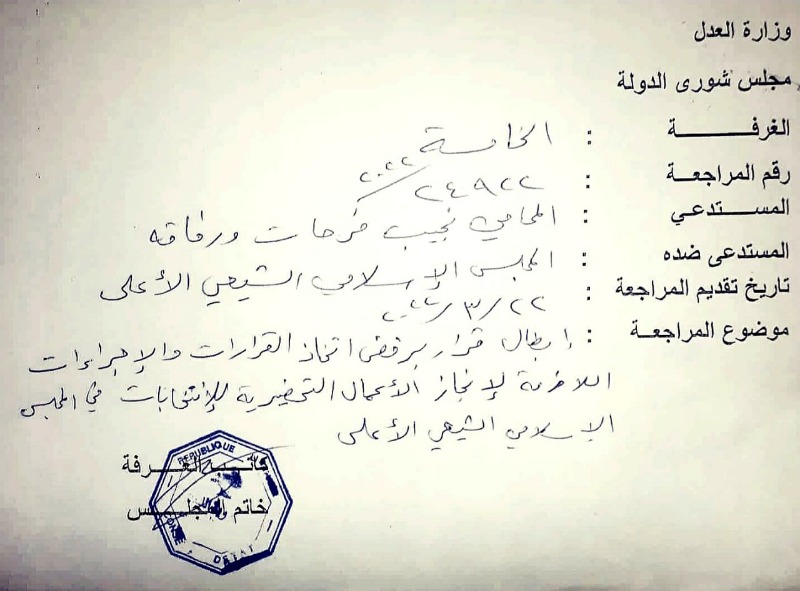 وزارة العدل
مجلس شورى الدولة
الغرفـــــــة : الخامسة
رقم المراجعـة : ٢٤٩٢٢/٢٠٢٢
المســـتدعـي : المحامي نجيب فرحات ورفاقه
المستدعى ضده : المجلس الإسلامي الشيعي الأعلى
تاريخ تقديم المراجعة : ٢٢/٣/٢٠٢٢
موضوع المراجعـة : إبطال قرار برفض اتخاذ القرارات والإجراءات
اللازمة لإنجاز الأعمال التحضيرية للإنتخابات في المجلس
الإسلامي الشيعي الأعلى
REPUBLIQUE
كاتبـــة الغـــرفة
خاتم المجلـــس
D'ETAT